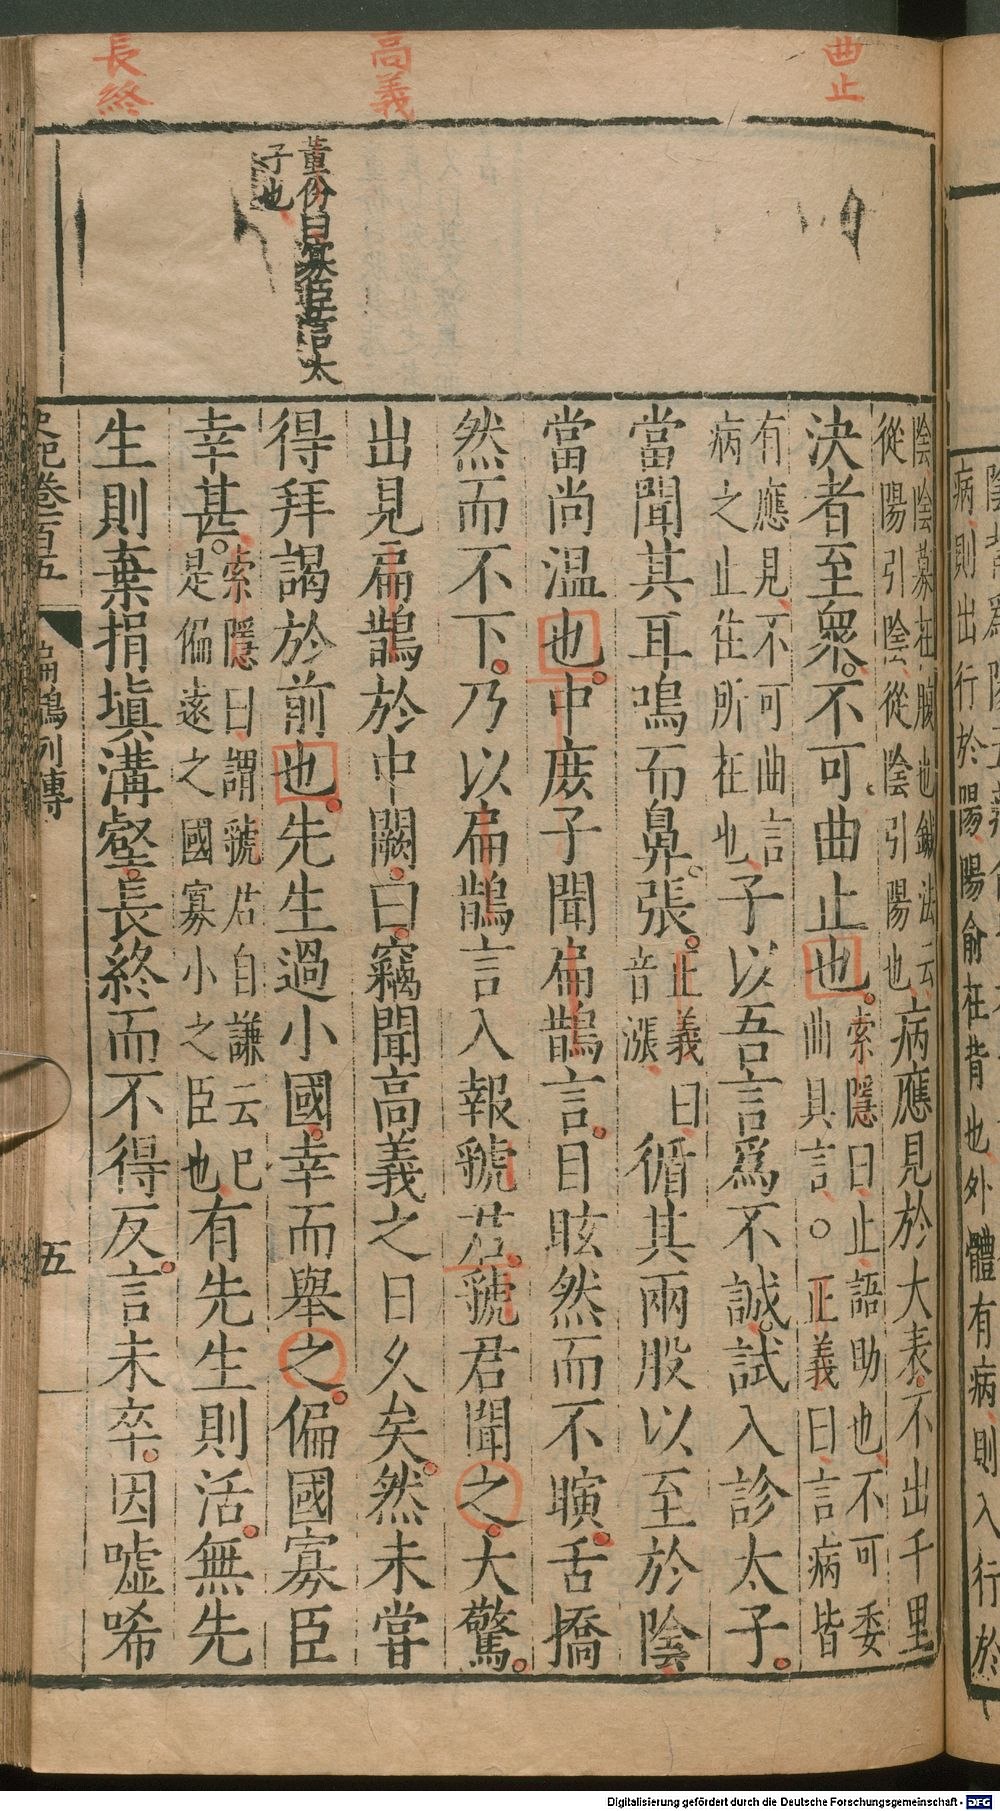 曲止
高義
長終
董份曰寡臣言太
子也
病則出行於陽陽俞在背也外體有病則入行於
陰陰募在腹也鍼法云
從陽引陰從陰引陽也
病應見於大表不出千里
決者至衆不可曲止也
索隱曰止語助也不可委
曲具言○正義曰言病皆
有應見不可曲言
病之止住所在也
子以吾言爲不誠試入診太子
當聞其耳鳴而鼻張
正義曰
音漲
循其兩股以至於陰
當尚温也中庶子聞扁鵲言目眩然而不瞚舌撟
然而不下乃以扁鵲言入報虢君虢君聞之大驚
出見扁鵲於中闕曰竊聞高義之日久矣然未嘗
得拜謁於前也先生過小國幸而舉之偏國寡臣
幸甚
索隱曰謂虢君自謙云已
是偏遠之國寡小之臣也
有先生則活無先
生則棄捐塡溝壑長終而不得反言未卒因噓唏
史記卷百五 扁鵲列傳 五
Digitalisierung gefördert durch die Deutsche Forschungsgemeinschaft - DFG